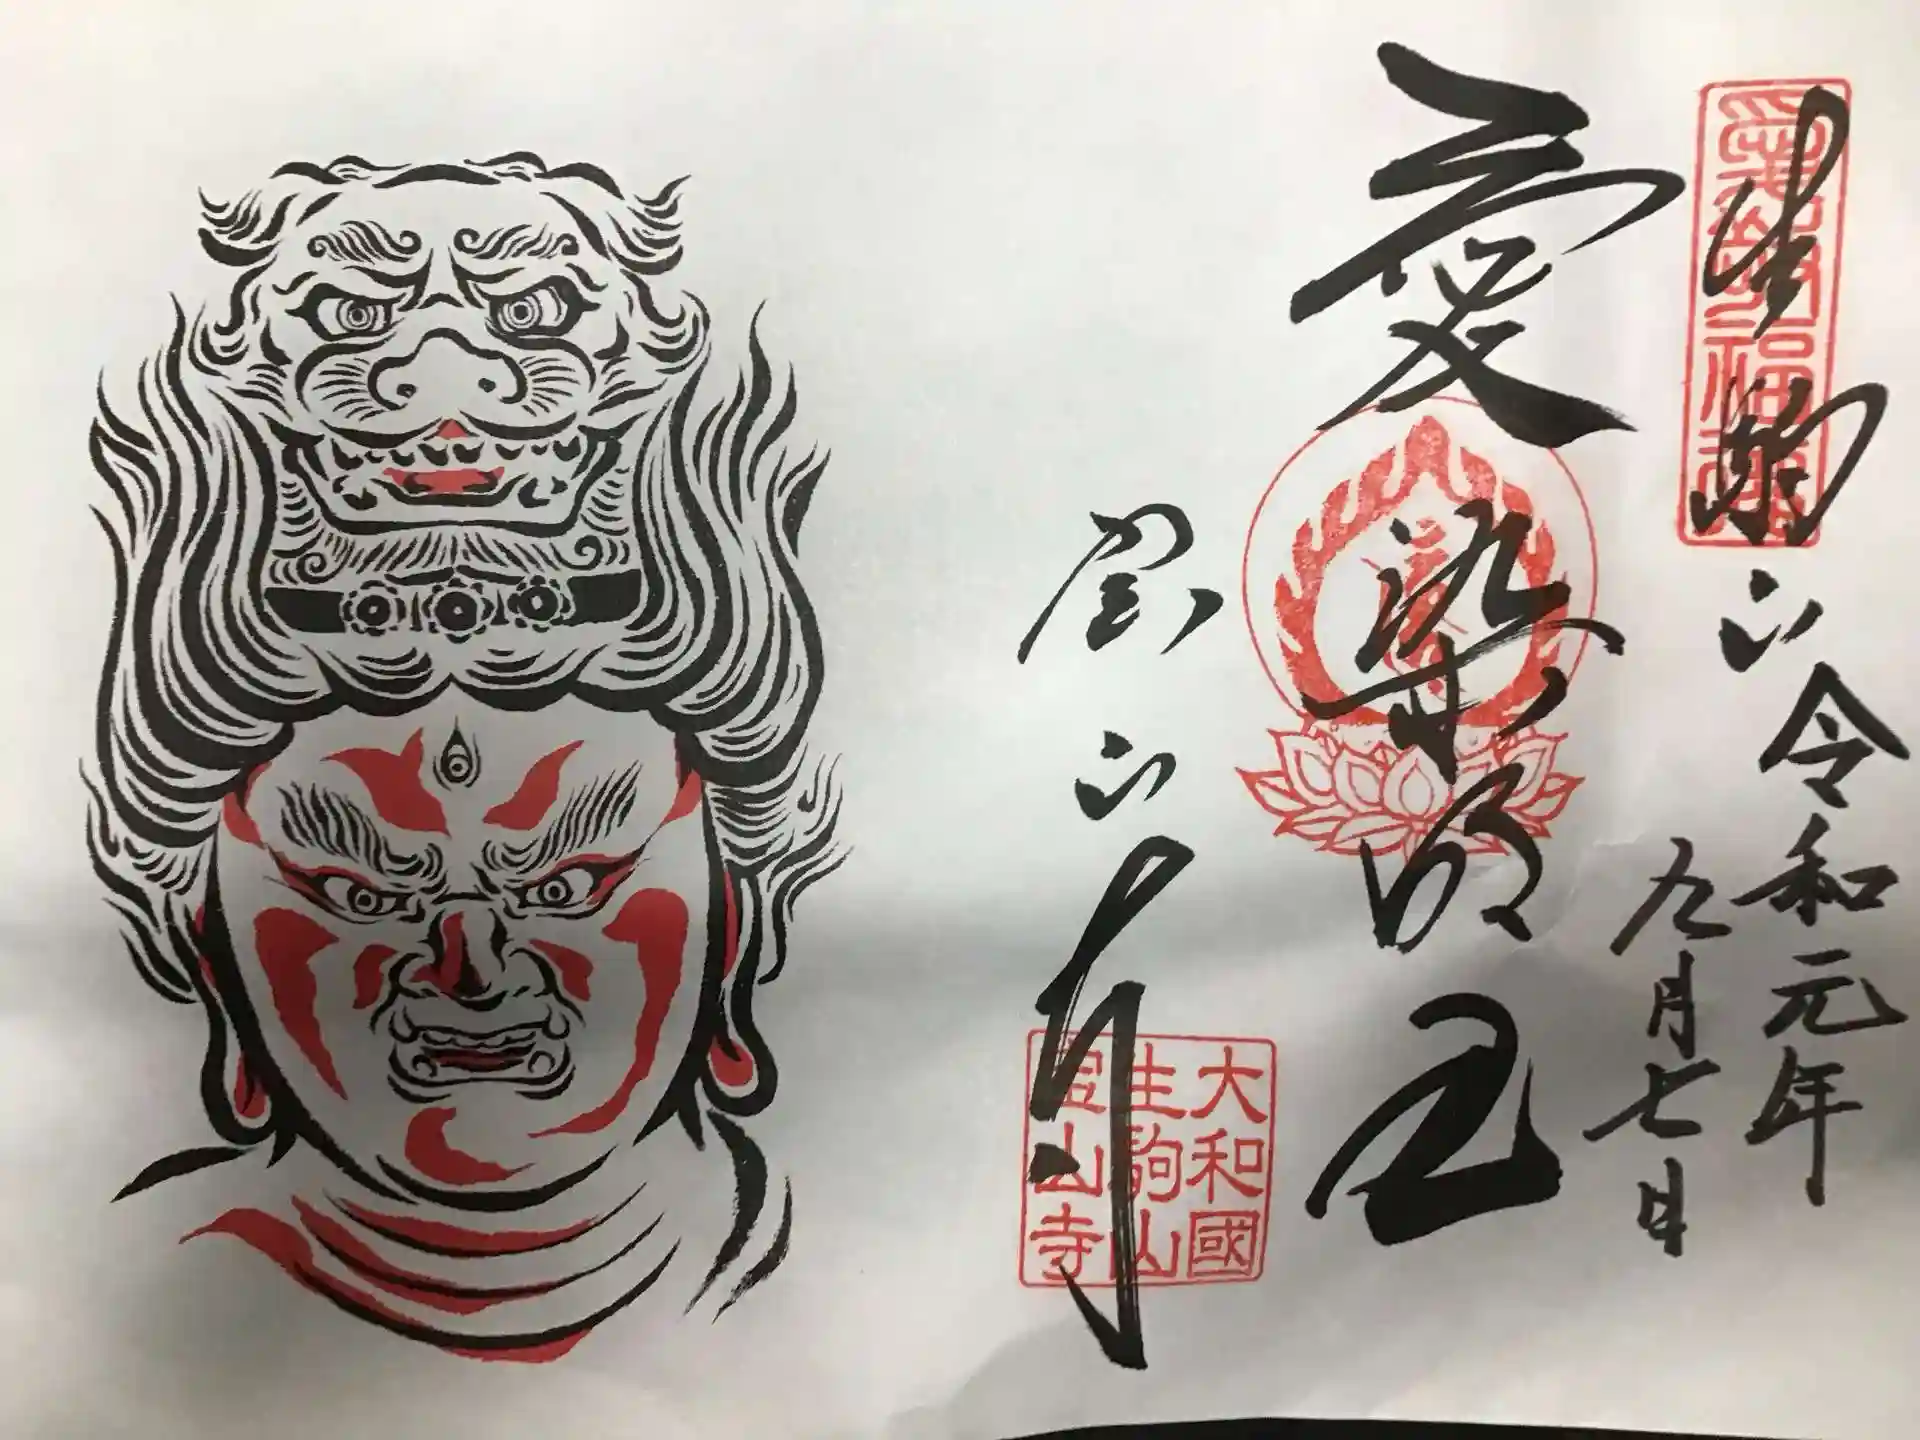 生駒山
令和元年
九月七日
愛染明王
宝山寺
大和國
生駒山
寳山寺